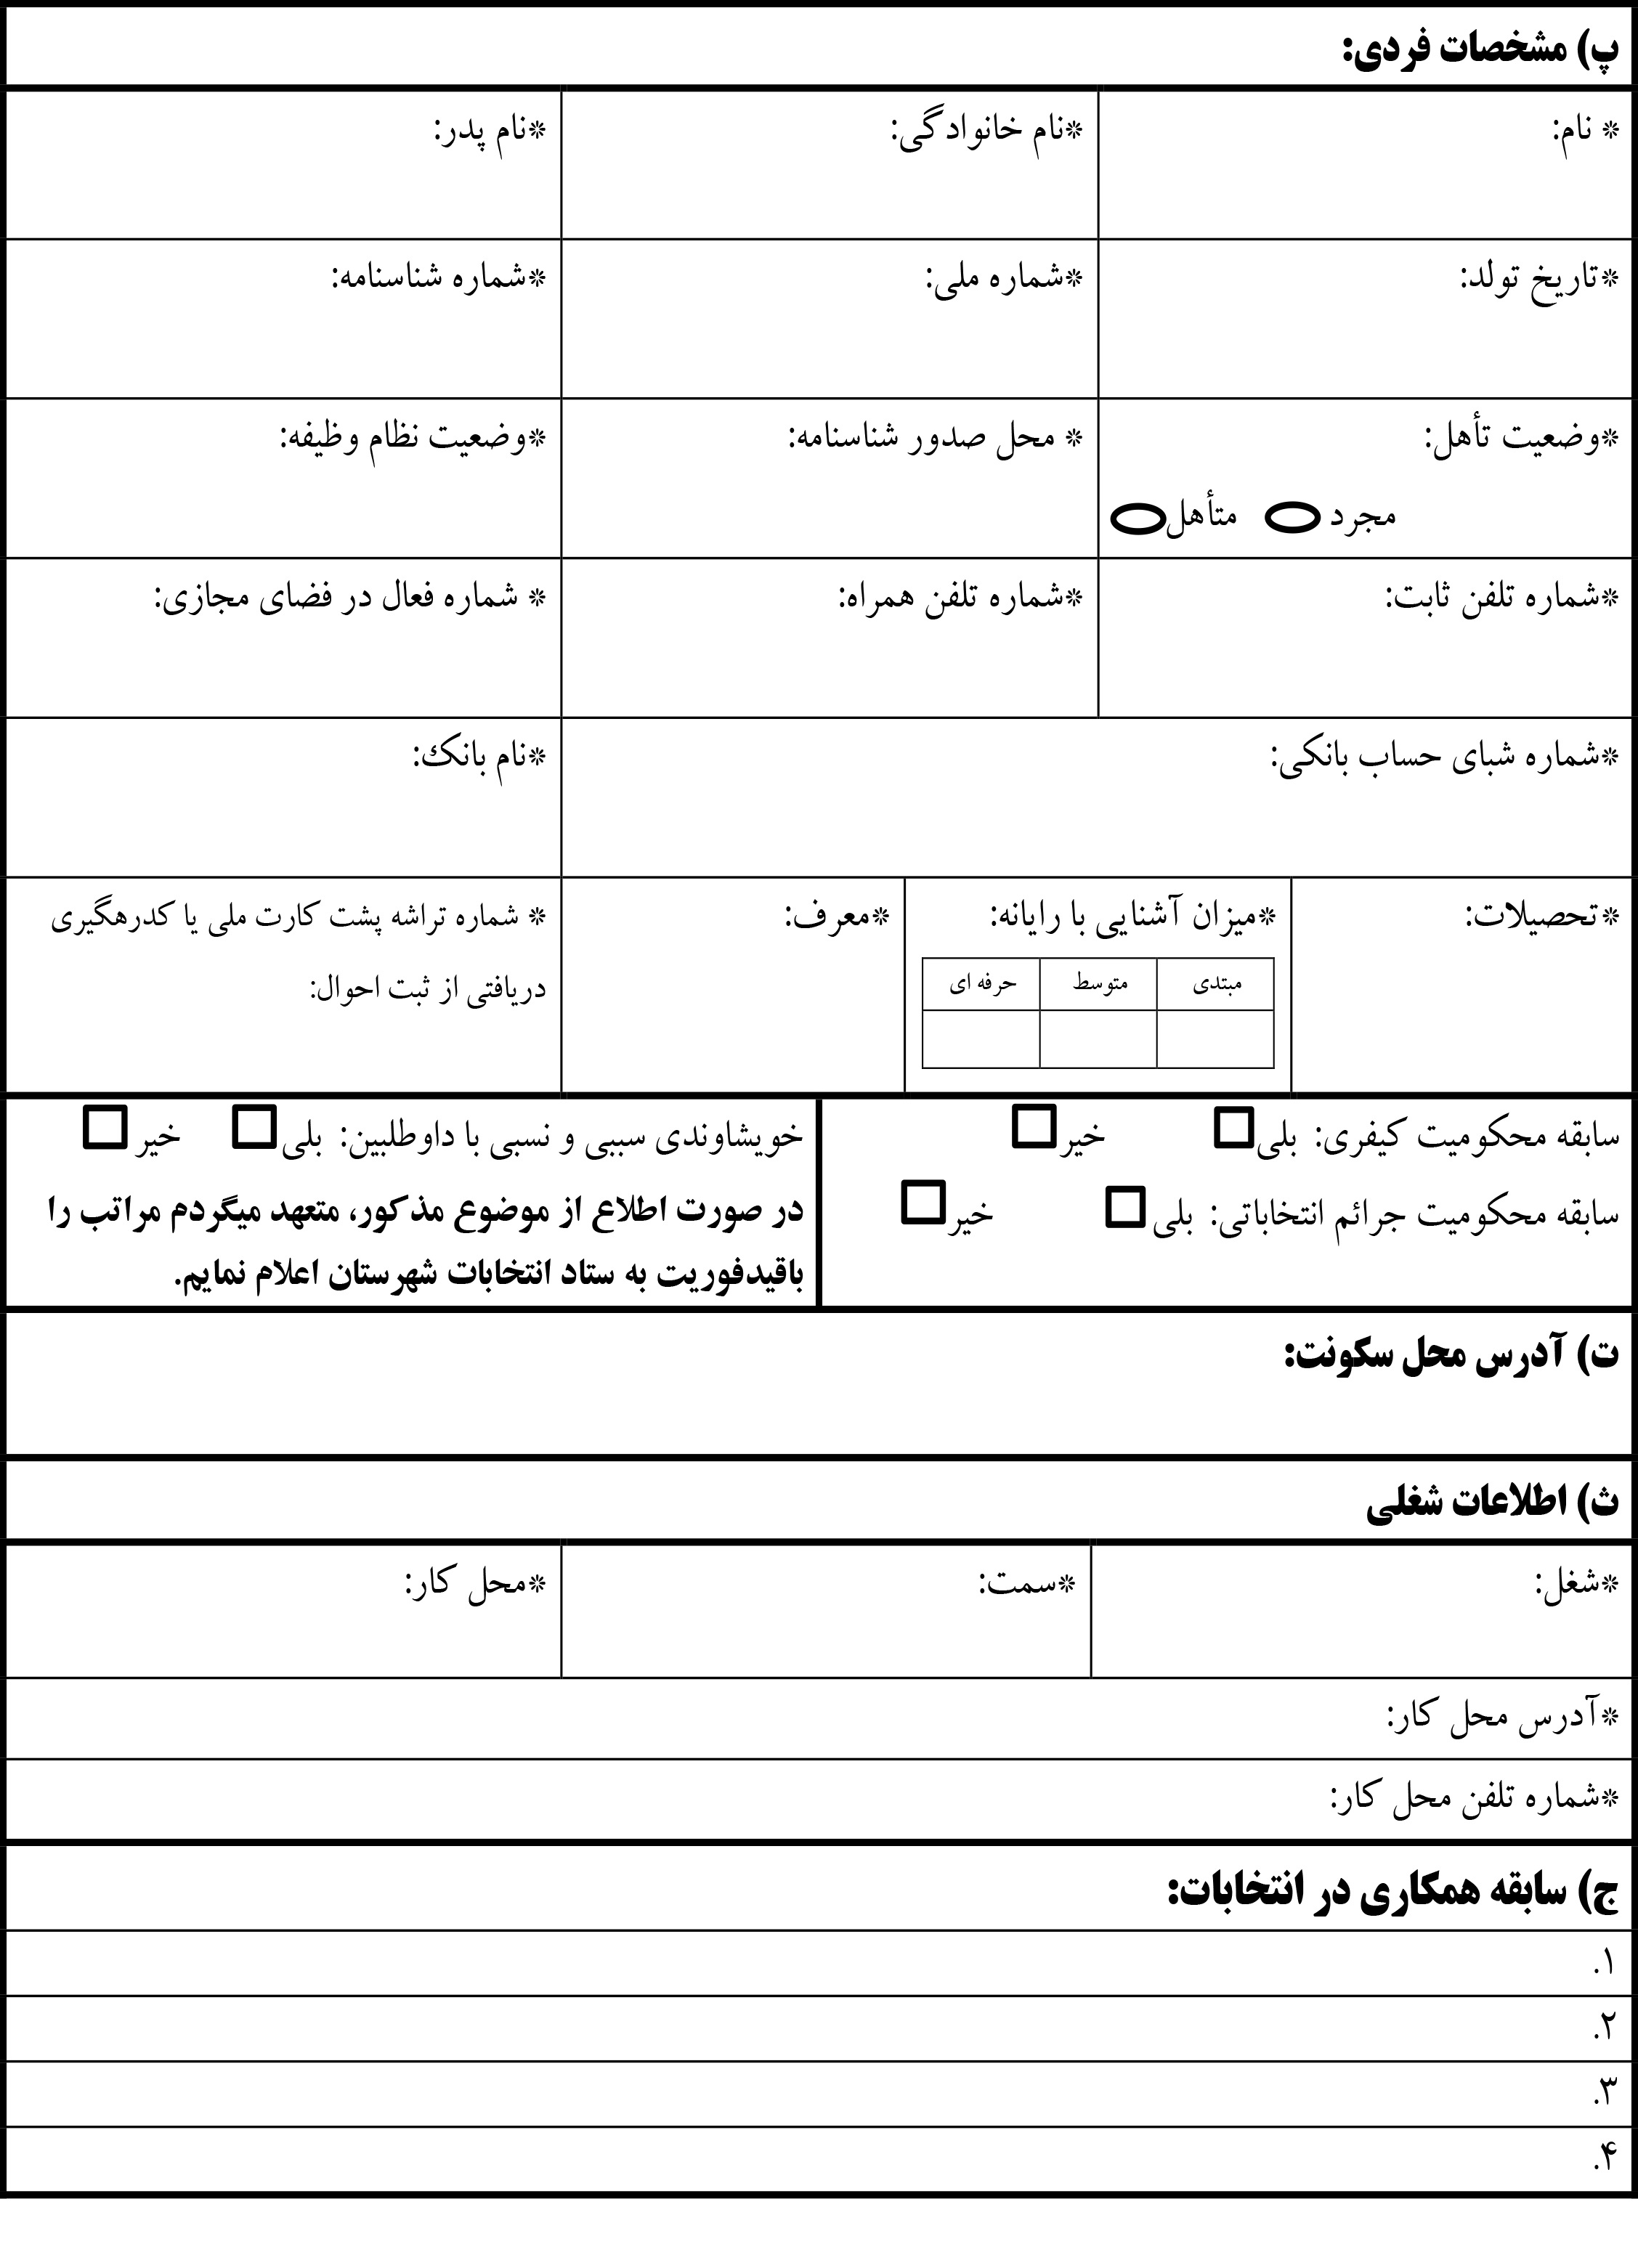 پ) مشخصات فردی:
* نام:
*نام خانوادگی:
*نام پدر:
*تاریخ تولد:
*شماره ملی:
*شماره شناسنامه:
*وضعیت تأهل:
مجرد متأهل
* محل صدور شناسنامه:
*وضعیت نظام وظیفه:
*شماره تلفن ثابت:
*شماره تلفن همراه:
* شماره فعال در فضای مجازی:
*شماره شبای حساب بانکی:
*نام بانک:
*تحصیلات:
*میزان آشنایی با رایانه:
مبتدی متوسط حرفه ای
*معرف:
* شماره تراشه پشت کارت ملی یا کدرهگیری
دریافتی از ثبت احوال:
سابقه محکومیت کیفری: بلی خیر
سابقه محکومیت جرائم انتخاباتی: بلی خیر
خویشاوندی سببی و نسبی با داوطلبین: بلی خیر
در صورت اطلاع از موضوع مذکور، متعهد میگردم مراتب را
باقیدفوریت به ستاد انتخابات شهرستان اعلام نمایم.
ت) آدرس محل سکونت:
ث) اطلاعات شغلی
*شغل:
*سمت:
*محل کار:
*آدرس محل کار:
*شماره تلفن محل کار:
ج) سابقه همکاری در انتخابات:
۱.
۲.
۳.
۴.